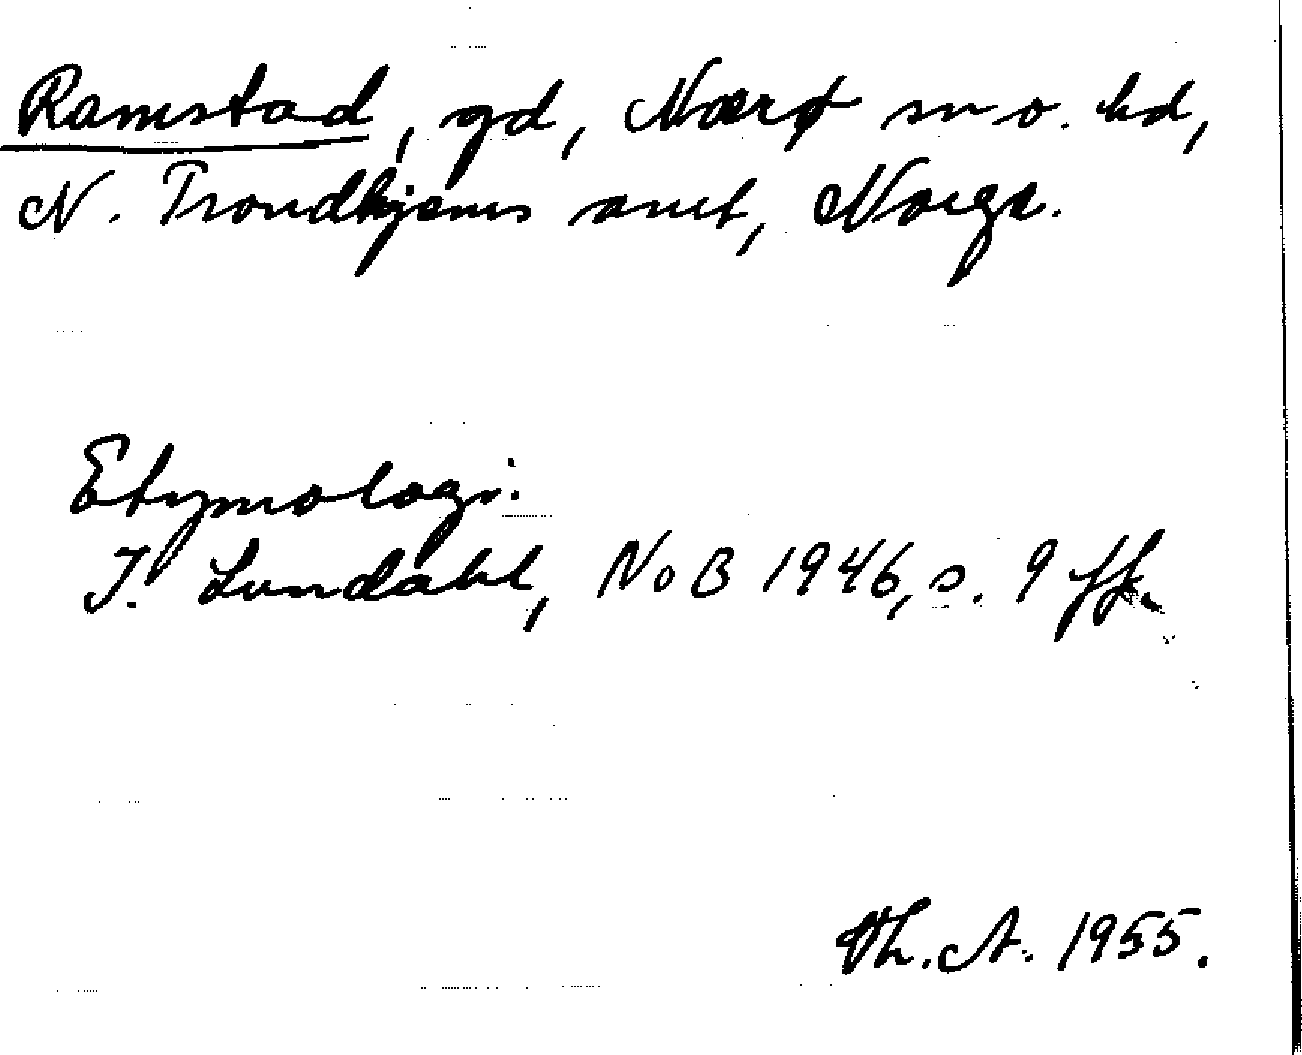 Ramstad, gd, Nærø sn o. hd,
N. Trondhjems amt, Norge.
Etymologi:
I. Lundahl, NoB 1946, s. 9 ff.
Th. A. 1955.